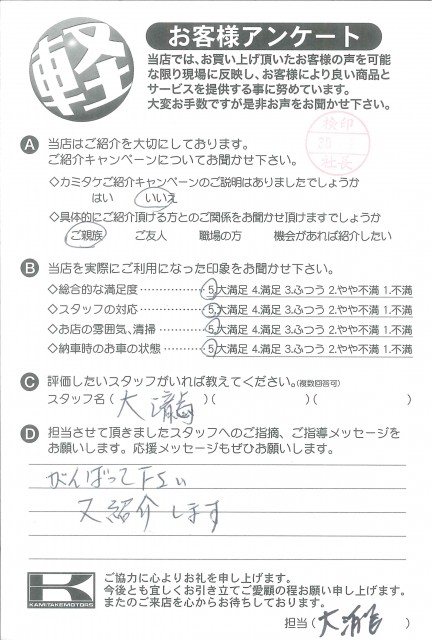 軽
お客様アンケート
当店では、お買い上げ頂いたお客様の声を可能
な限り現場に反映し、お客様により良い商品と
サービスを提供する事に努めています。
大変お手数ですが是非お声をお聞かせ下さい。
検印
社長
A 当店はご紹介を大切にしております。
ご紹介キャンペーンについてお聞かせ下さい。
◇カミタケご紹介キャンペーンのご説明はありましたでしょうか
はい いいえ
◇具体的にご紹介頂ける方とのご関係をお聞かせ頂けますでしょうか
ご親族 ご友人 職場の方 機会があれば紹介したい
B 当店を実際にご利用になった印象をお聞かせ下さい。
◇総合的な満足度…………… 5.大満足 4.満足 3.ふつう 2.やや不満 1.不満
◇スタッフの対応…………… 5.大満足 4.満足 3.ふつう 2.やや不満 1.不満
◇お店の雰囲気、清掃……… 5.大満足 4.満足 3.ふつう 2.やや不満 1.不満
◇納車時のお車の状態……… 5.大満足 4.満足 3.ふつう 2.やや不満 1.不満
C 評価したいスタッフがいれば教えてください。(複数回答可)
スタッフ名( 大瀧 )( )( )
D 担当させて頂きましたスタッフへのご指摘、ご指導メッセージを
お願いします。応援メッセージもぜひお願いします。
がんばって下さい
又紹介します
K
KAMITAKEMOTORS
ご協力に心よりお礼を申し上げます。
今後とも宜しくお引き立てご愛顧の程お願い申し上げます。
またのご来店を心からお待ちしております。
担当( 大 )